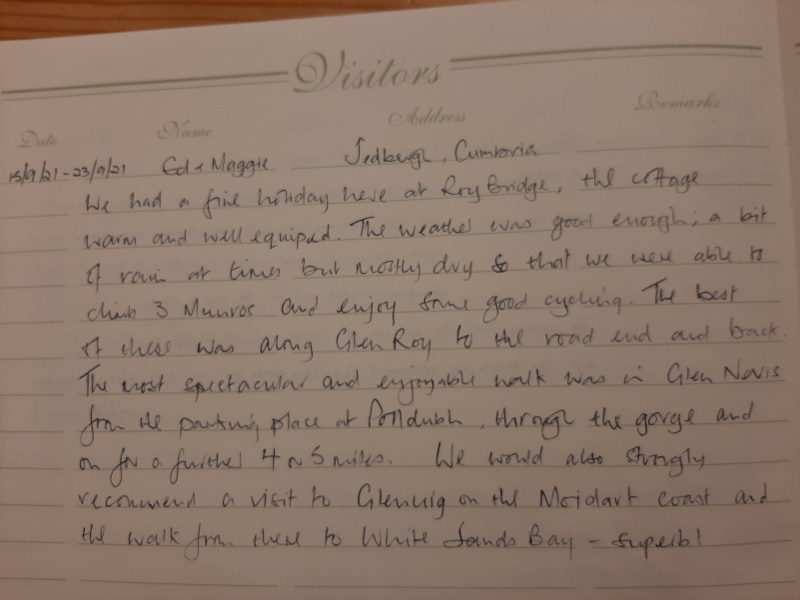 Visitors
Date Name Address Remarks
15/9/21-23/9/21 Ed & Maggie Jedburgh, Cumbria
We had a fine holiday here at Roy Bridge, the cottage
warm and well equiped. The weather was good enough; a bit
of rain at times but mostly dry so that we were able to
climb 3 Munros and enjoy some good cycling. The best
of these was along Glen Roy to the road end and back.
The most spectacular and enjoyable walk was in Glen Nevis
from the parking place at Polldubh, through the gorge and
on for a further 4 or 5 miles. We would also strongly
recommend a visit to Glenuig on the Moidart coast and
the walk from there to White Sands Bay - superb!